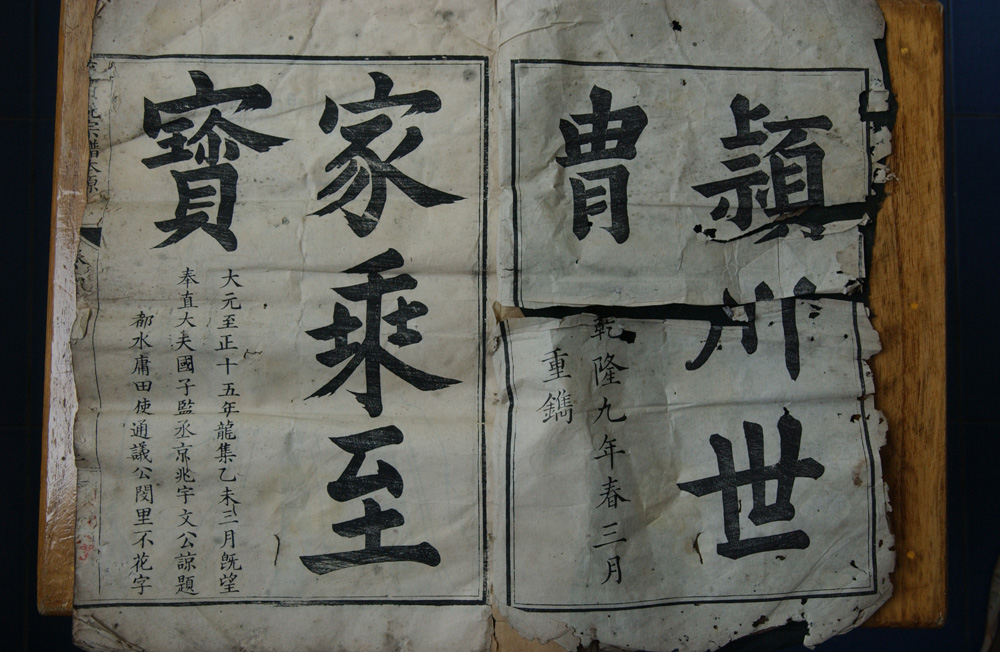 頴川世
胄
乾隆九年春三月
重鐫
家乘至
寳
大元至正十五年龍集乙未三月旣望
奉直大夫國子監丞京兆宇文公諒題
都水庸田使通議公閔里不花字
宗譜